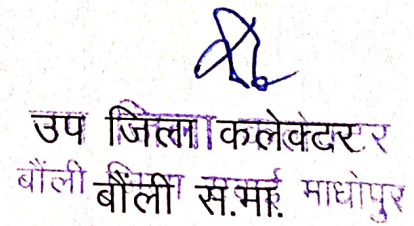 उप जिला कलेक्टर
बौंली स.मा. माधोपुर